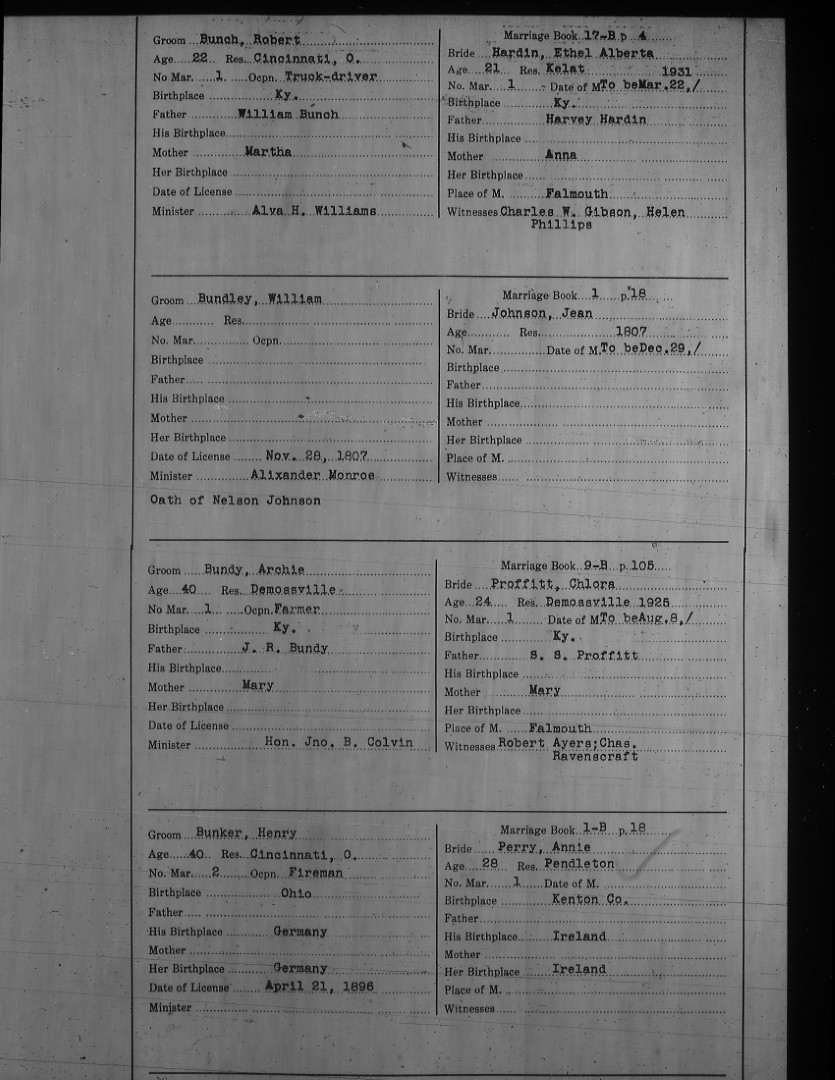 Groom Bunch, Robert
Age 22 Res. Cincinnati, O.
No Mar. 1. Ocpn. Truck-driver
Birthplace Ky.
Father William Bunch
His Birthplace
Mother Martha
Her Birthplace
Date of License
Minister Alva H. Williams
Marriage Book 17-B p. 4
Bride Hardin, Ethel Alberta
Age 21 Res. Kelat 1931
No. Mar. 1 Date of M To be Mar. 22, /
Birthplace Ky.
Father Harvey Hardin
His Birthplace
Mother Anna
Her Birthplace
Place of M. Falmouth
Witnesses Charles W. Gibson, Helen
Phillips
Groom Bundley, William
Age Res.
No. Mar. Ocpn.
Birthplace
Father
His Birthplace
Mother
Her Birthplace
Date of License Nov. 28, 1807
Minister Alixander Monroe
Oath of Nelson Johnson
Marriage Book 1 p. 18
Bride Johnson, Jean
Age Res. 1807
No. Mar. Date of M. To be Dec. 29, /
Birthplace
Father
His Birthplace
Mother
Her Birthplace
Place of M.
Witnesses
Groom Bundy, Archie
Age 40 Res. Demossville
No Mar. 1 Ocpn. Farmer
Birthplace Ky.
Father J. R. Bundy
His Birthplace
Mother Mary
Her Birthplace
Date of License
Minister Hon. Jno. B. Colvin
Marriage Book 9-B p. 105
Bride Proffitt, Chlora
Age 24 Res. Demossville 1925
No. Mar. 1 Date of M To be Aug. 8, /
Birthplace Ky.
Father S. S. Proffitt
His Birthplace
Mother Mary
Her Birthplace
Place of M. Falmouth
Witnesses Robert Ayers; Chas.
Ravenscraft
Groom Bunker, Henry
Age 40 Res. Cincinnati, O.
No. Mar. 2 Ocpn. Fireman
Birthplace Ohio
Father
His Birthplace Germany
Mother
Her Birthplace Germany
Date of License April 21, 1896
Minister
Marriage Book 1-B p. 18
Bride Perry, Annie
Age 28 Res. Pendleton
No. Mar. 1 Date of M.
Birthplace Kenton Co.
Father
His Birthplace Ireland
Mother
Her Birthplace Ireland
Place of M.
Witnesses